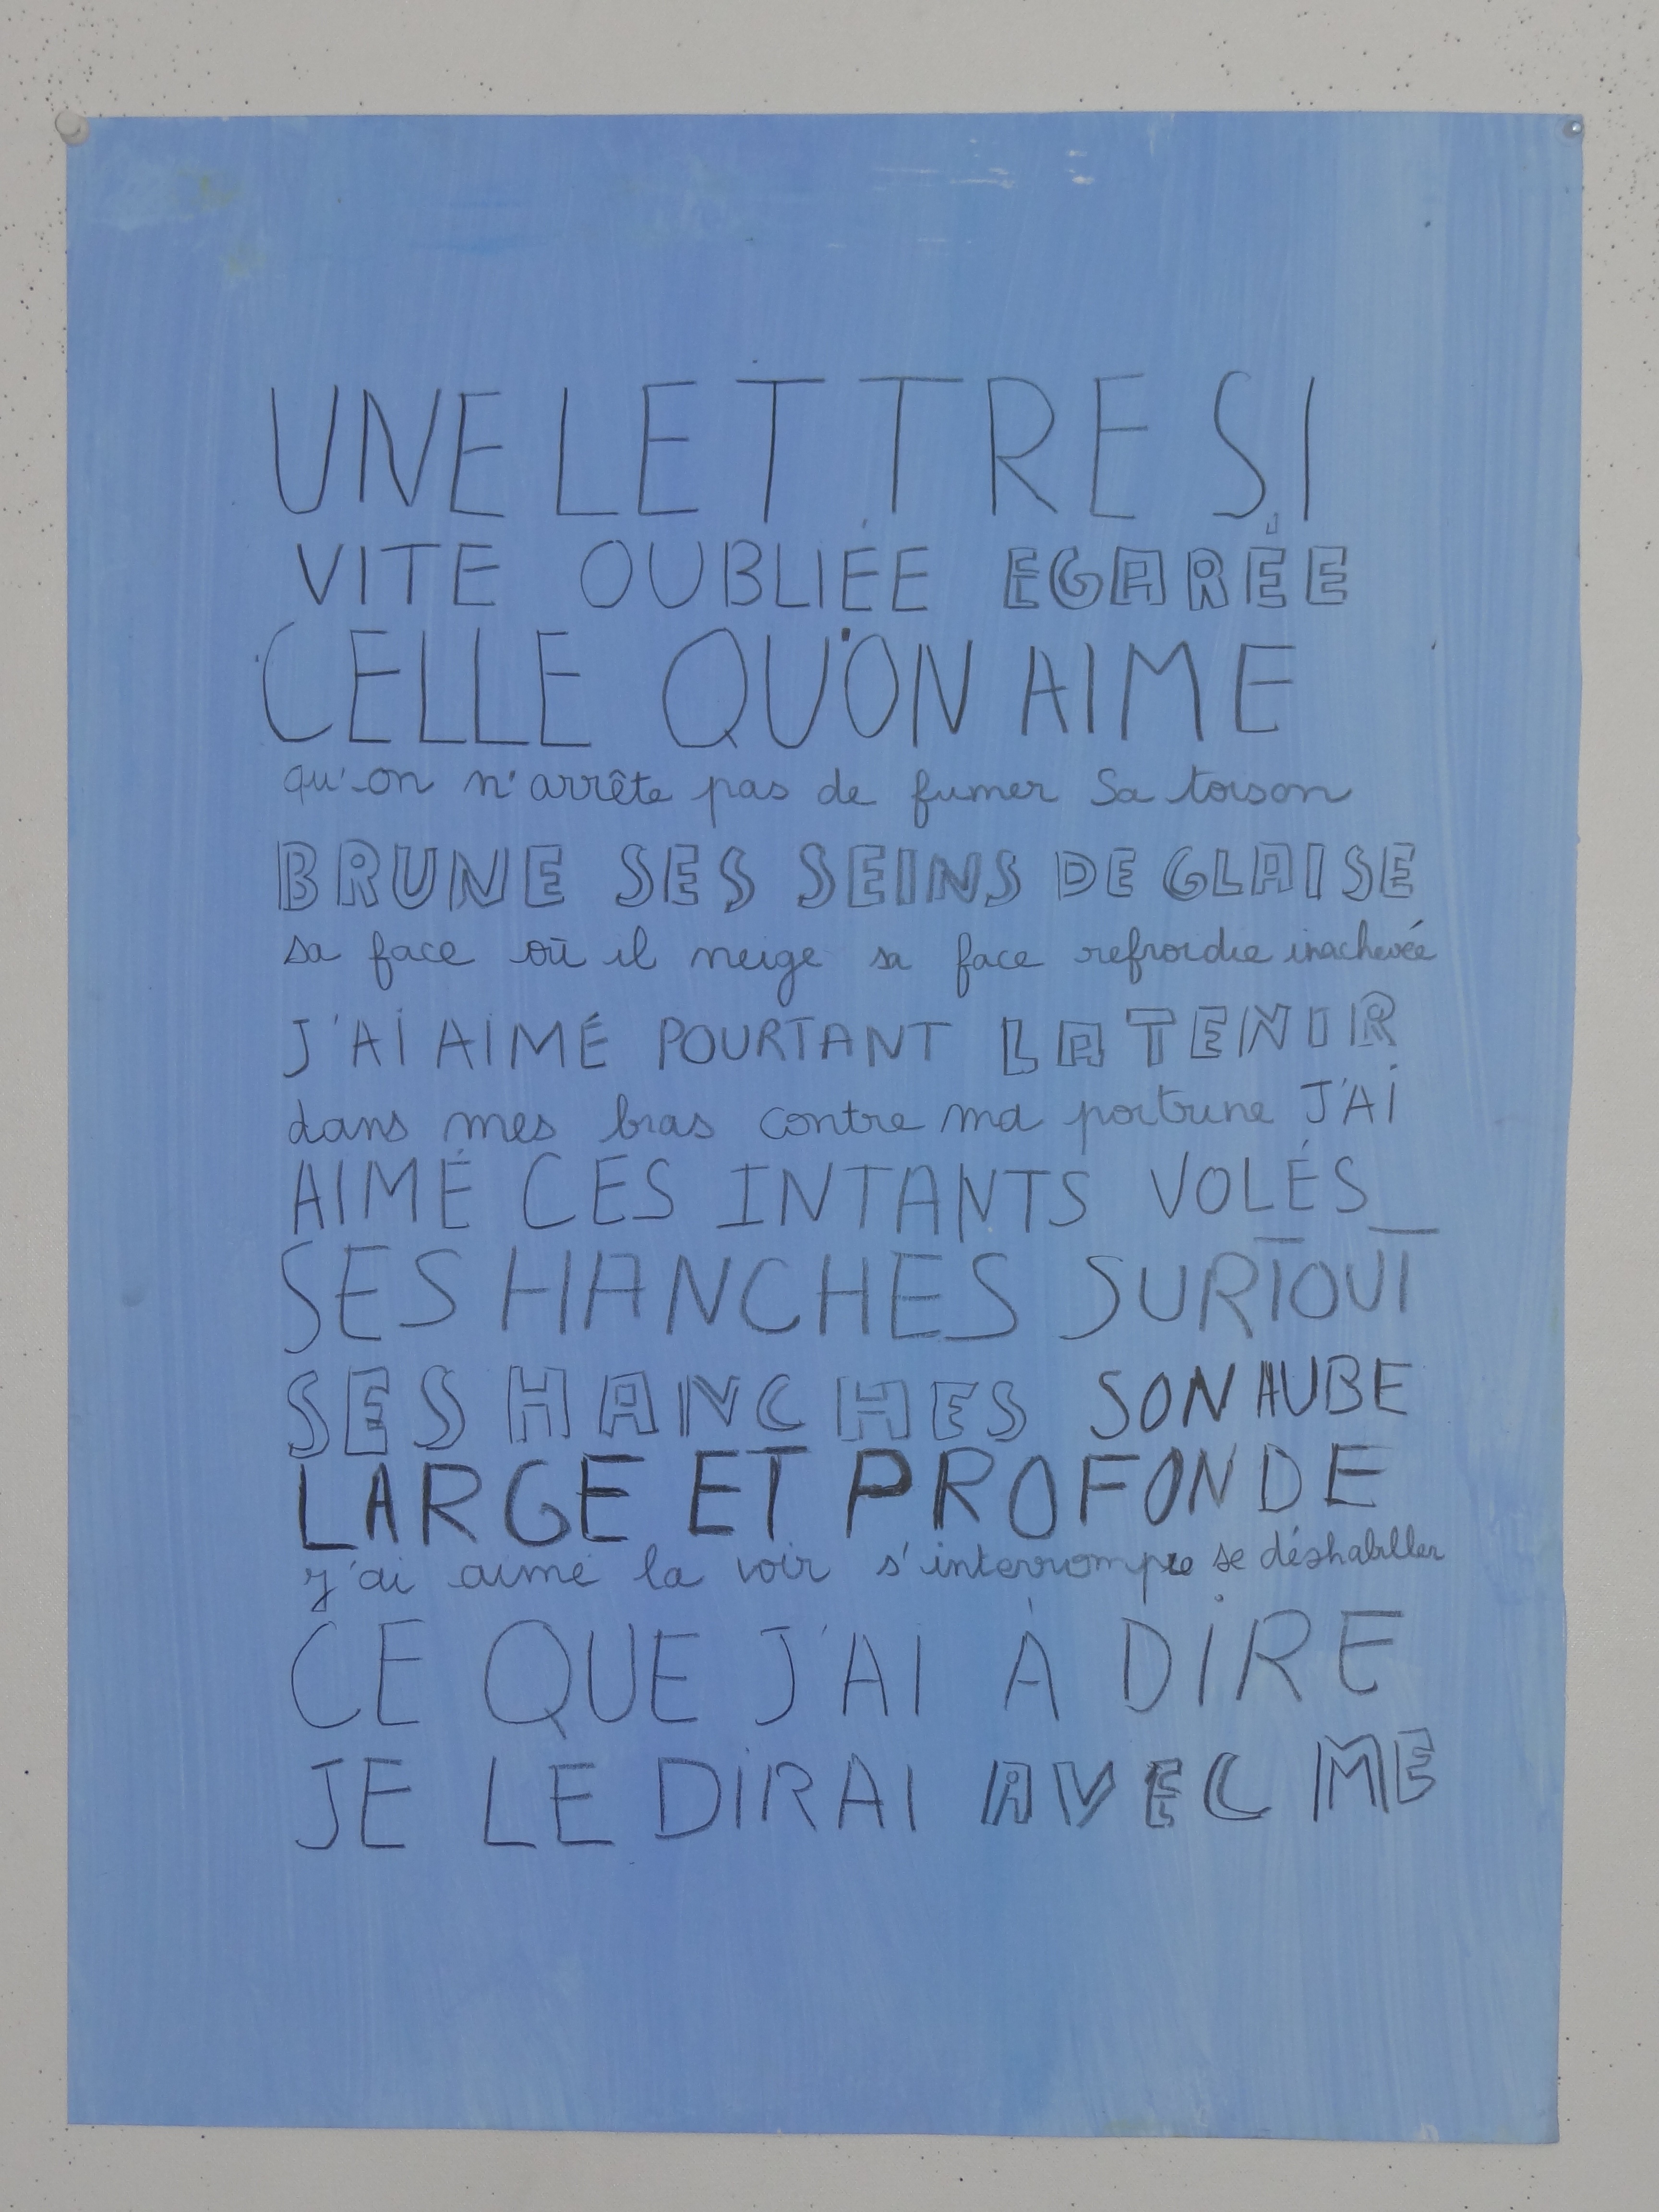 UNE LETTRE SI
VITE OUBLIÉE EGARÉE
CELLE QU'ON AIME
qu'on n'arrête pas de fumer Sa toison
BRUNE SES SEINS DE GLAISE
sa face où il neige sa face refroidie inachevée
J'AI AIMÉ POURTANT LA TENIR
dans mes bras contre ma poitrine J'AI
AIMÉ CES INTANTS VOLÉS_
SES HANCHES SURTOUT
SES HANCHES SON AUBE
LARGE ET PROFONDE
j'ai aimé la voir s'interrompre se déshabiller
CE QUE J'AI À DIRE
JE LE DIRAI AVEC ME